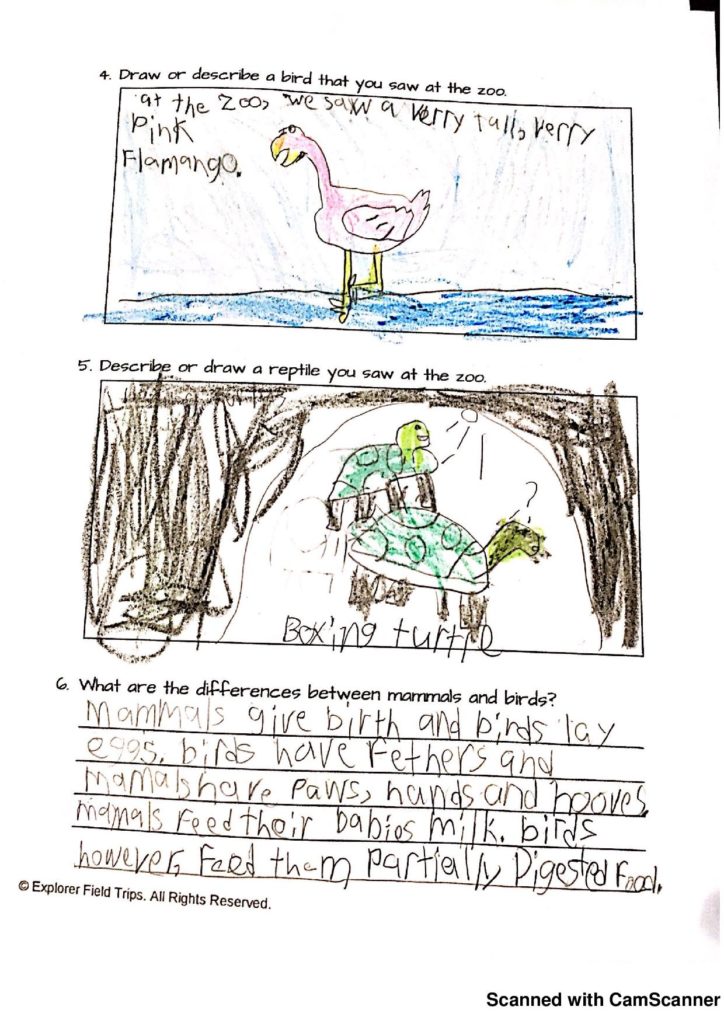 4. Draw or describe a bird that you saw at the zoo.
at the Zoo, we saw a verry tall, verry
pink
Flamango.
5. Describe or draw a reptile you saw at the zoo.
?
Boxing turtle
6. What are the differences between mammals and birds?
Mammals give birth and birds lay
eggs. birds have Fethers and
mamals have paws, hands and hooves.
mamals Feed their babies milk. birds
however, Feed them partially Digested Food.
© Explorer Field Trips. All Rights Reserved.
Scanned with CamScanner